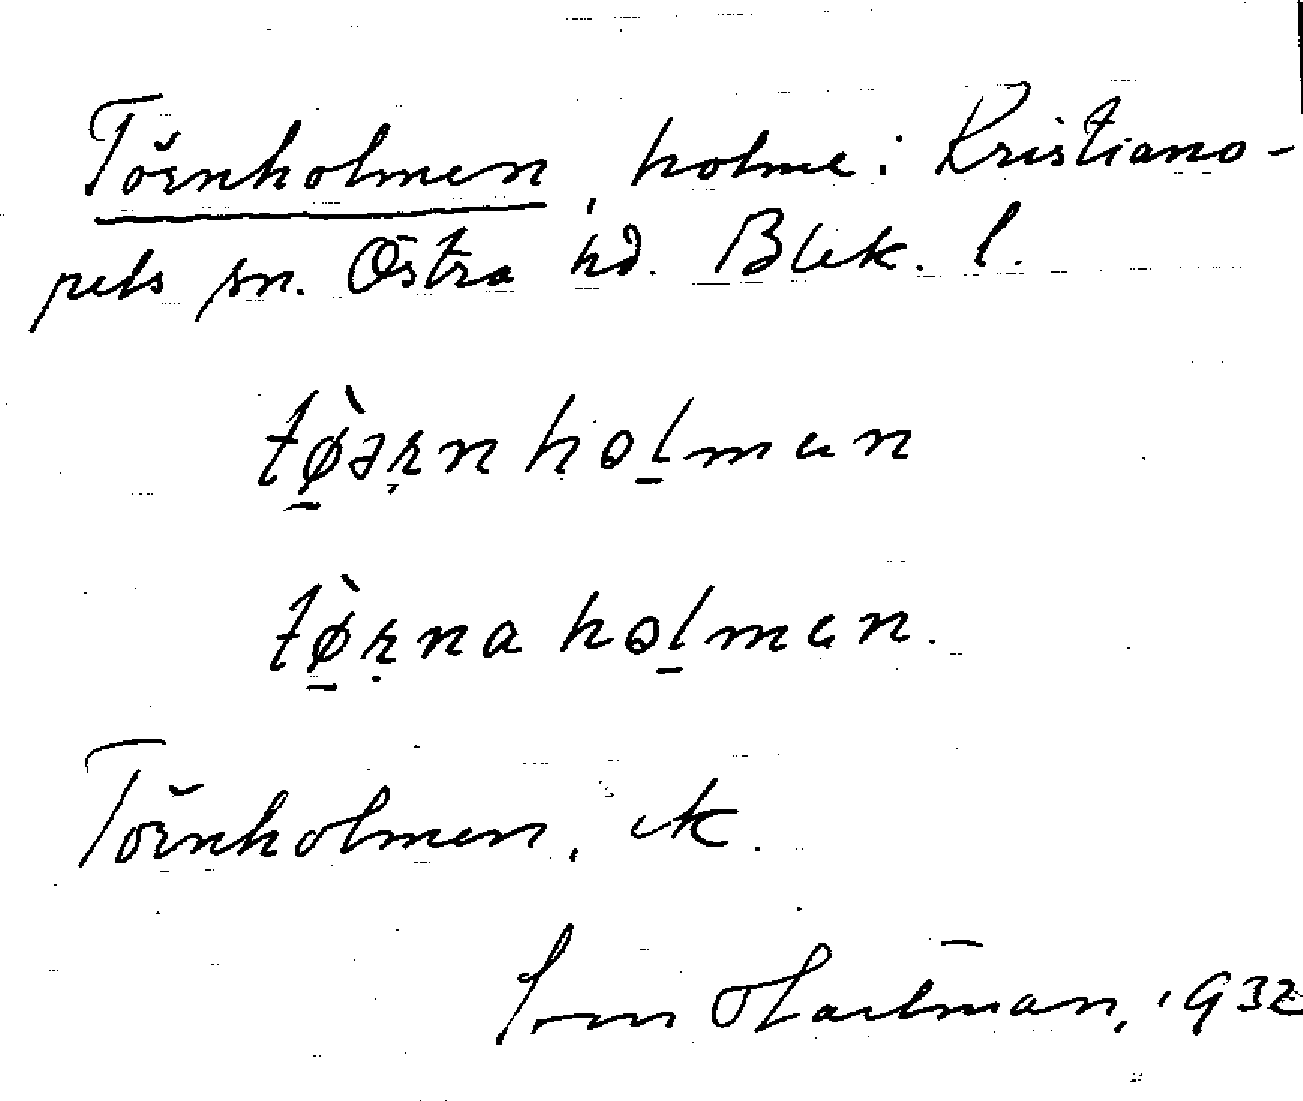 Törnholmen, holme i Kristiano-
pels sn. Östra hd. Blek. l.
tø̀ərnholmən
tø̀rnaholmən.
Törnholmen, ek.
Sven Hartman, 1932